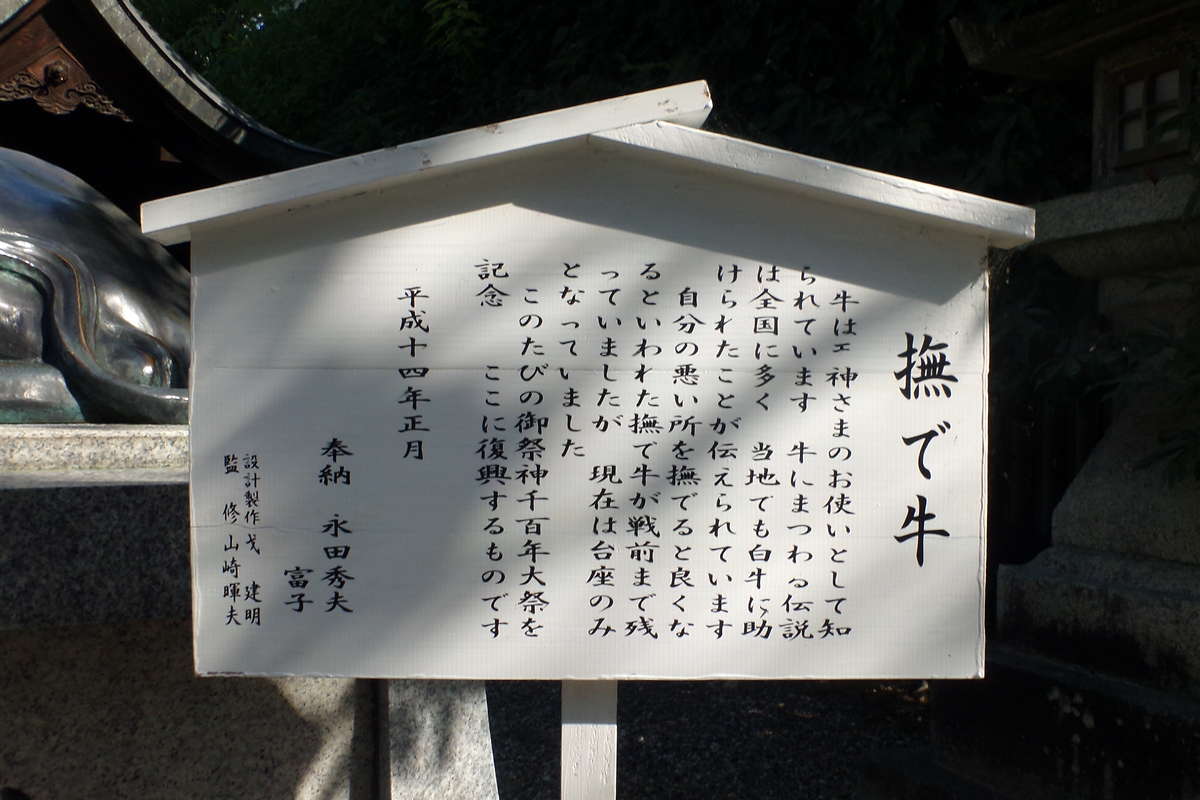 撫で牛
牛はェ神さまのお使いとして知
られています　牛にまつわる伝説
は全国に多く　当地でも白牛に助
けられたことが伝えられています
自分の悪い所を撫でると良くな
るといわれた撫で牛が戦前まで残
っていましたが　現在は台座のみ
となっていました
このたびの御祭神千百年大祭を
記念　ここに復興するものです
平成十四年正月
奉納　永田秀夫
富子
設計製作　戈　建明
監　修　山崎暉夫